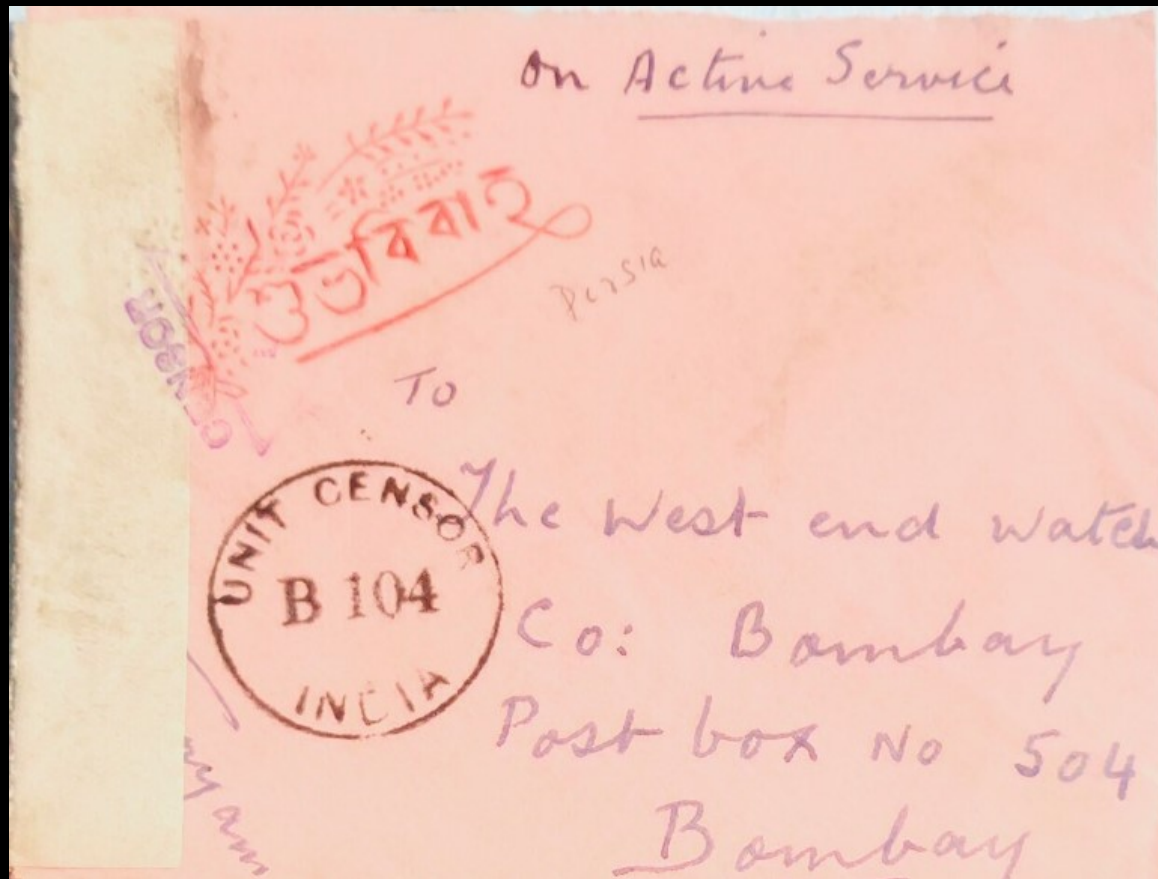 on Active Service
শুভবিবাহ
Persia
To
CENSOR
UNIT CENSOR
B 104
INDIA
The West end watch
Co: Bombay
Post box No 504
Bombay